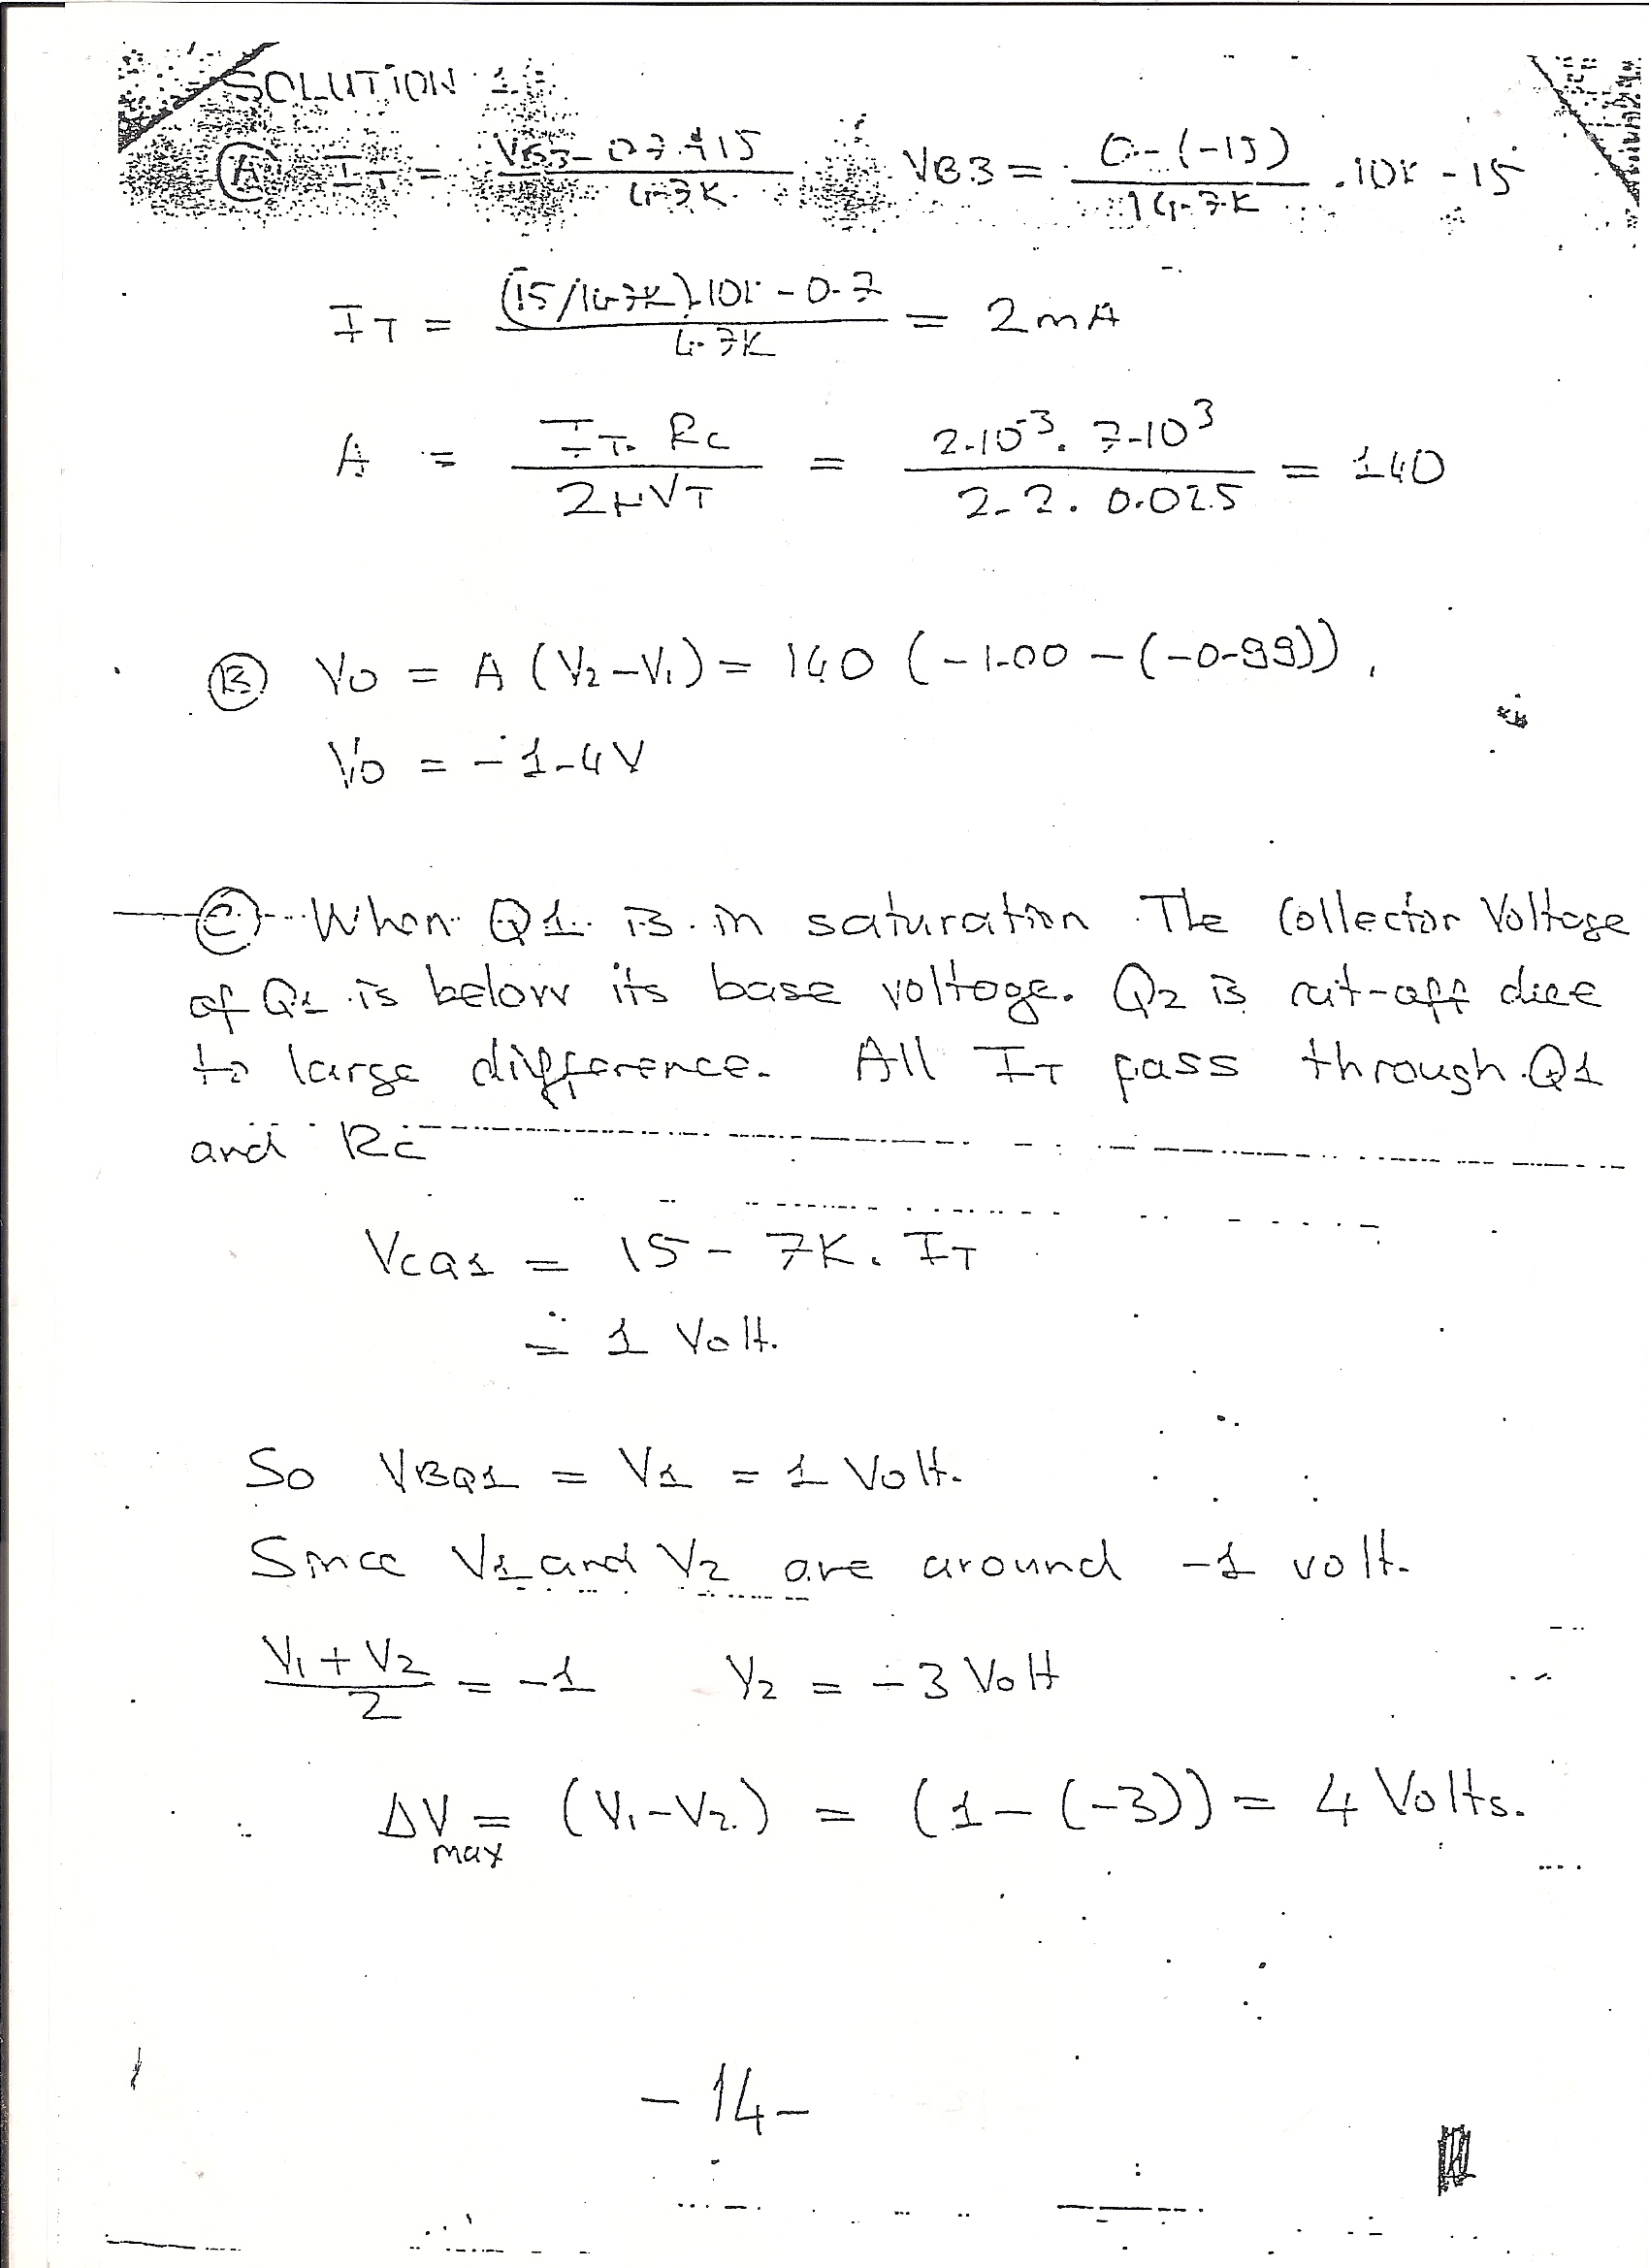 SOLUTION 1
(A) IT = VB3 - 0.7 + 15 / 4.7K   VB3 = 0-(-15) / 14.7K . 10K - 15
IT = (15/14.7K).10K - 0.7 / 4.7K = 2mA
A = IT. RC / 2ηVT = 2.10^-3. 7.10^3 / 2.2. 0.025 = 140
(B) VO = A (V2-V1) = 140 (-1.00 - (-0.99)).
VO = -1.4V
(C) When Q1 is in saturation The Collector Voltage
of Q1 is below its base voltage. Q2 is cut-off due
to large difference. All IT pass through Q1
and RC
VCQ1 = 15 - 7K. IT
= 1 Volt.
So VBQ1 = V1 = 1 Volt.
Since V1 and V2 are around -1 volt.
V1 + V2 / 2 = -1   V2 = -3 Volt
ΔVmax = (V1-V2) = (1-(-3)) = 4 Volts.
-14-